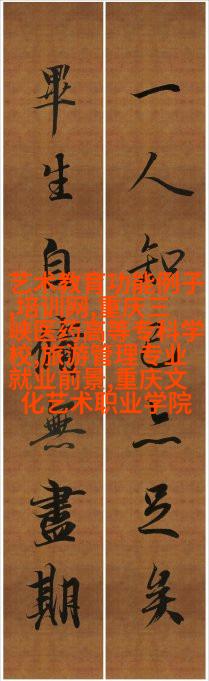 一人知己亦足矣
畢生自脩無盡期
艺术教育功能例子
,培训网,重庆三
峡医药高等专科学
校,旅游管理专业
就业前景,重庆文
化艺术职业学院